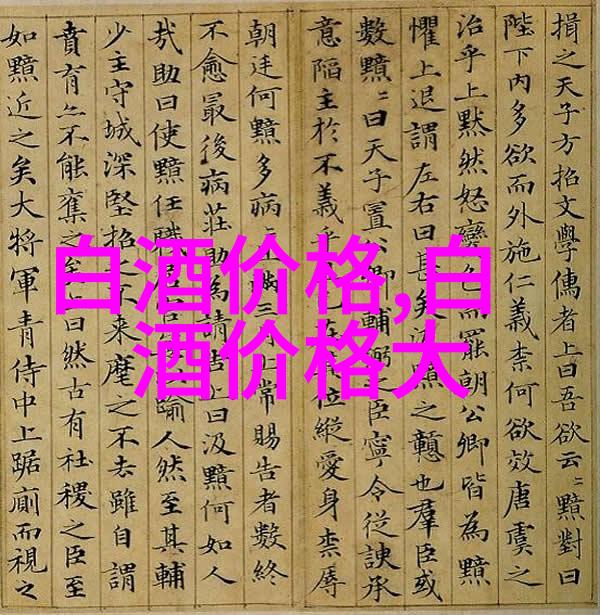 白酒价格,白
酒价格大
揖之天子方招文學儒者上曰吾欲云〻黯對曰
陛下内多欲而外施仁義柰何欲效唐虞之
治乎上黙然怒變色而罷朝公卿皆為黯
懼上退謂左右曰甚矣汲黯之戇也羣臣或
數黯〻曰天子置公卿輔弼之臣寧令從諛承
意陷主於不義乎已在其位縱愛身柰辱
朝廷何黯多病〻且滿三月上常賜告者數終
不愈最後病莊助為請告上曰汲黯何如人
㢤助曰使黯任職居踰人然至其輔
少主守城深堅招之不来麾之不去雖自謂
賁育亦不能奪之矣上曰然古有社稷之臣至
如黯近之矣大將軍青侍中上踞廁而視之